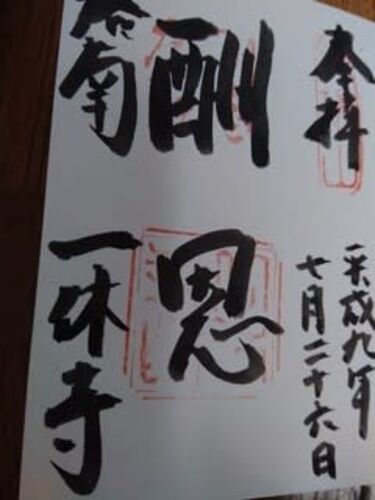 奉拝
平成九年
七月二十六日
酬恩
洛南 一休寺